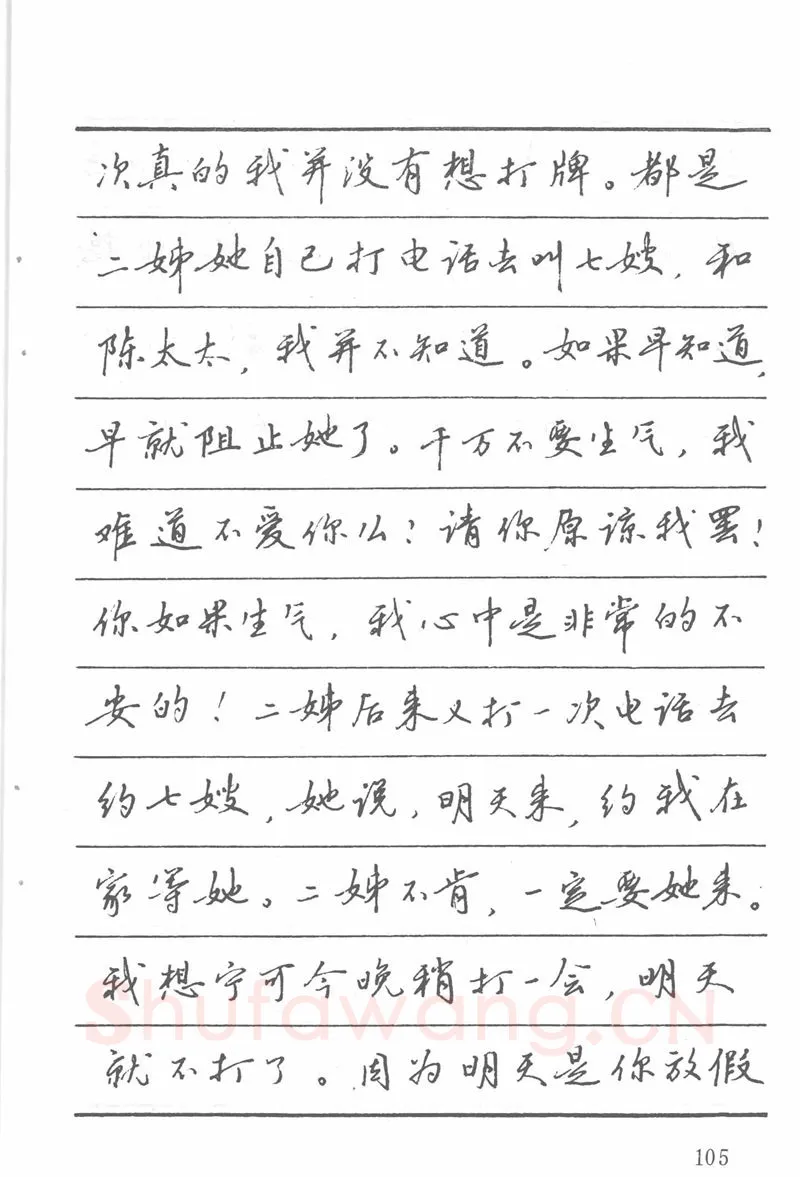 次真的我并没有想打牌。都是
二姊她自己打电话去叫七嫂，和
陈太太，我并不知道。如果早知道，
早就阻止她了。千万不要生气，我
难道不爱你么！请你原谅我罢！
你如果生气，我心中是非常的不
安的！二姊后来又打一次电话去
约七嫂，她说，明天来，约我在
家等她。二姊不肯，一定要她来。
我想宁可今晚稍打一会，明天
就不打了。因为明天是你放假
Shufawang.CN
105